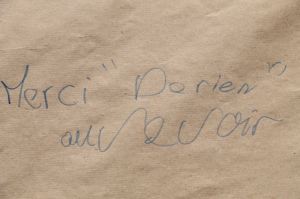 Merci "Dorien",
au revoir